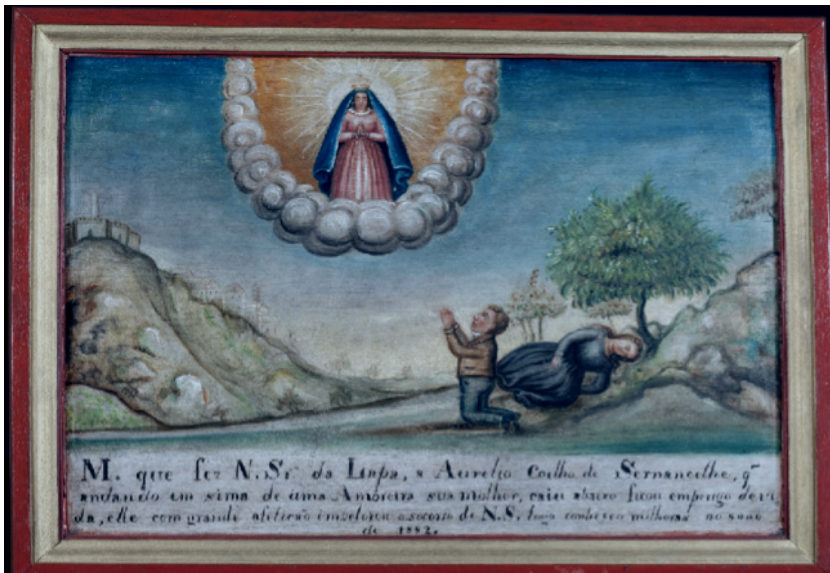 M. que fez N. Sr.ª da Lapa, a Aurelio Coelho de Sernancelhe, q̃
andando em sima de uma Amoreira sua molher, caiu abaixo ficou em perigo de vi
da, elle com grande aflição o socorro de N. S. logo milhoras no anno
de 1882.